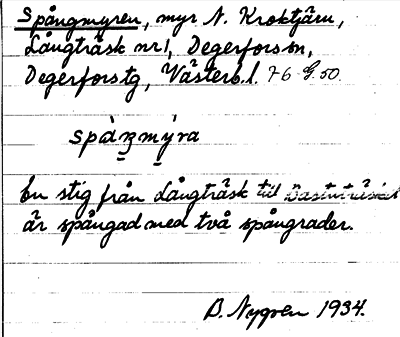 Spångmyren, myr N. Kroktjärn,
Långträsk nr 1, Degerfors sn,
Degerfors tg, Västerb. l. 76 G. 50.
spàŋmy̆ra
En stig från Långträsk till
är spångad med två spångrader.
B. Nygren 1934.